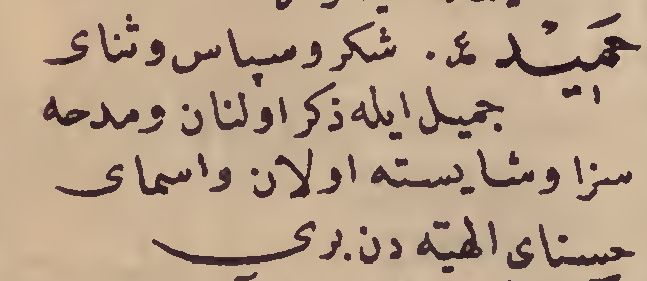 حميد ع. شكر و سپاس و ثناى
جميل ايله ذكر اولنان و مدحه
سزا و شايسته اولان و اسماى
حسناى الهيّه دن برى